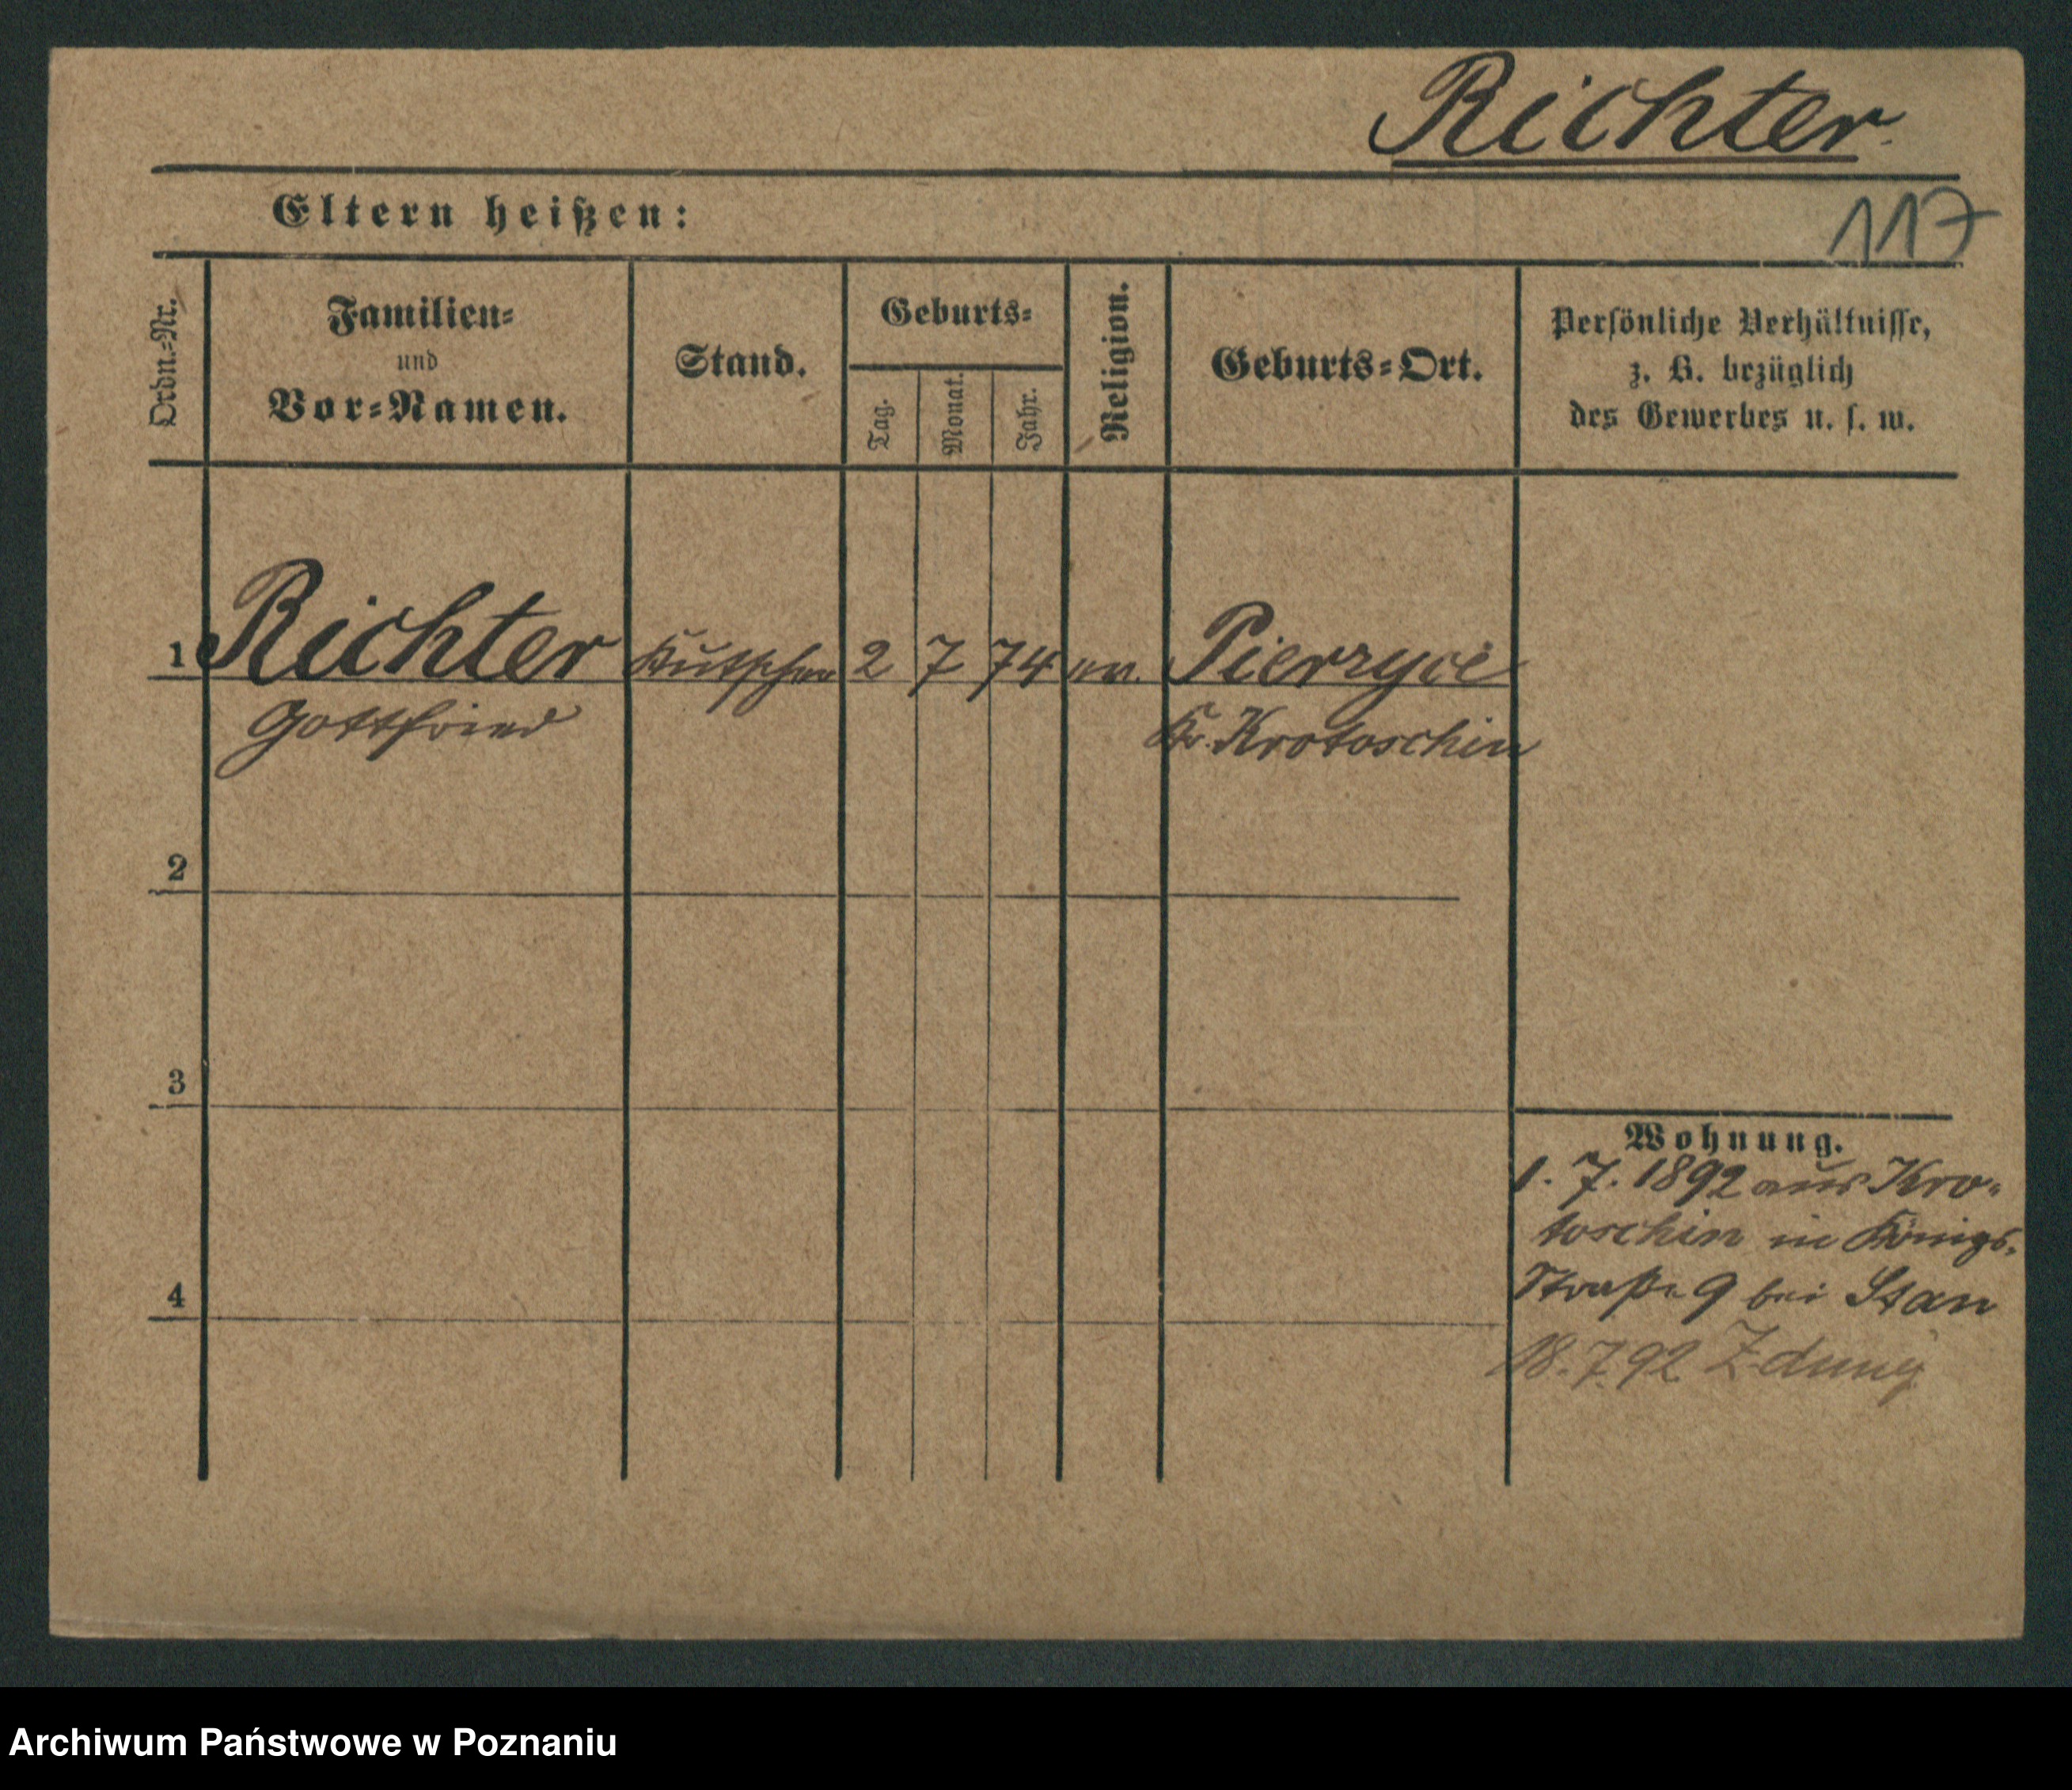 Richter.
117
Eltern heißen:
Ordn.-Nr.
Familien-
und
Vor-Namen.
Stand.
Geburts-
Tag.
Monat.
Jahr.
Religion.
Geburts-Ort.
Persönliche Verhältnisse,
z. B. bezüglich
des Gewerbes u. s. w.
1 Richter Kutscher 2 7 74 ev. Pierzyce
Gottfried Kr. Krotoschin
2
3
4
Wohnung.
1. 7. 1892 aus Kro-
toschin in Königs-
straße 9 bei Stan
18. 7. 92 Zduny
Archiwum Państwowe w Poznaniu